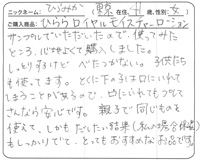 ニックネーム: ひろみかん (東京在住, 41歳, 性別:女)
ご購入商品: ひららロイヤルモイスチャーローション
サンプルでいただいたので、使ってみた
ところ、心地よくて購入しました。
しっとりするけどべたつかない。子供たち
も使ってます。とくに下の子は口にいれて
しまうことがあるので、口にいれてもつづ
さんなら安心です。親子で同じものを
使えて、しかもだしたい結果(私の場合保湿)
もしっかりでて…とってもおすすめなお品です。